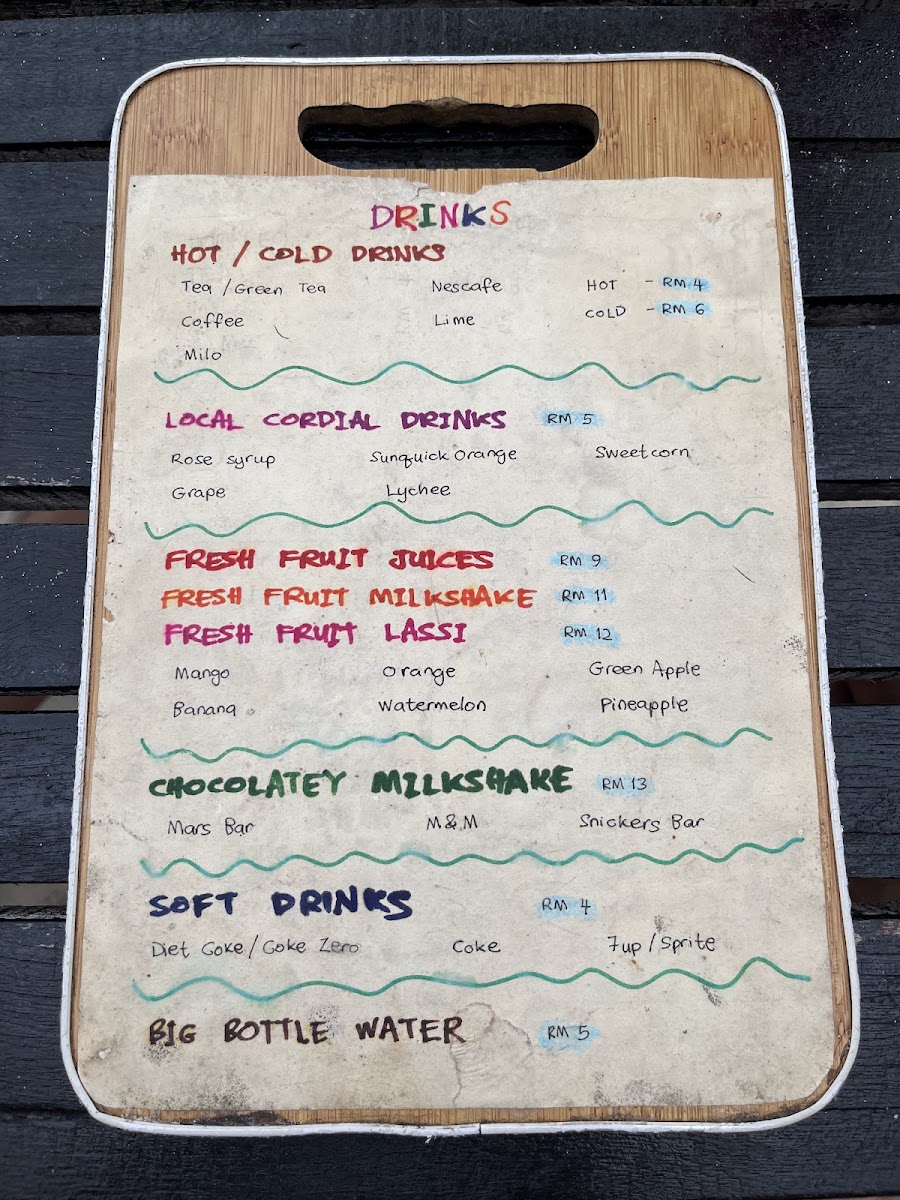 DRINKS
HOT / COLD DRINKS
Tea / Green Tea Nescafe HOT - RM 4
Coffee Lime COLD - RM 6
Milo
LOCAL CORDIAL DRINKS RM 5
Rose syrup Sunquick Orange Sweetcorn
Grape Lychee
FRESH FRUIT JUICES RM 9
FRESH FRUIT MILKSHAKE RM 11
FRESH FRUIT LASSI RM 12
Mango Orange Green Apple
Banana Watermelon Pineapple
CHOCOLATEY MILKSHAKE RM 13
Mars Bar M&M Snickers Bar
SOFT DRINKS RM 4
Diet Coke / Coke Zero Coke 7up / Sprite
BIG BOTTLE WATER RM 5